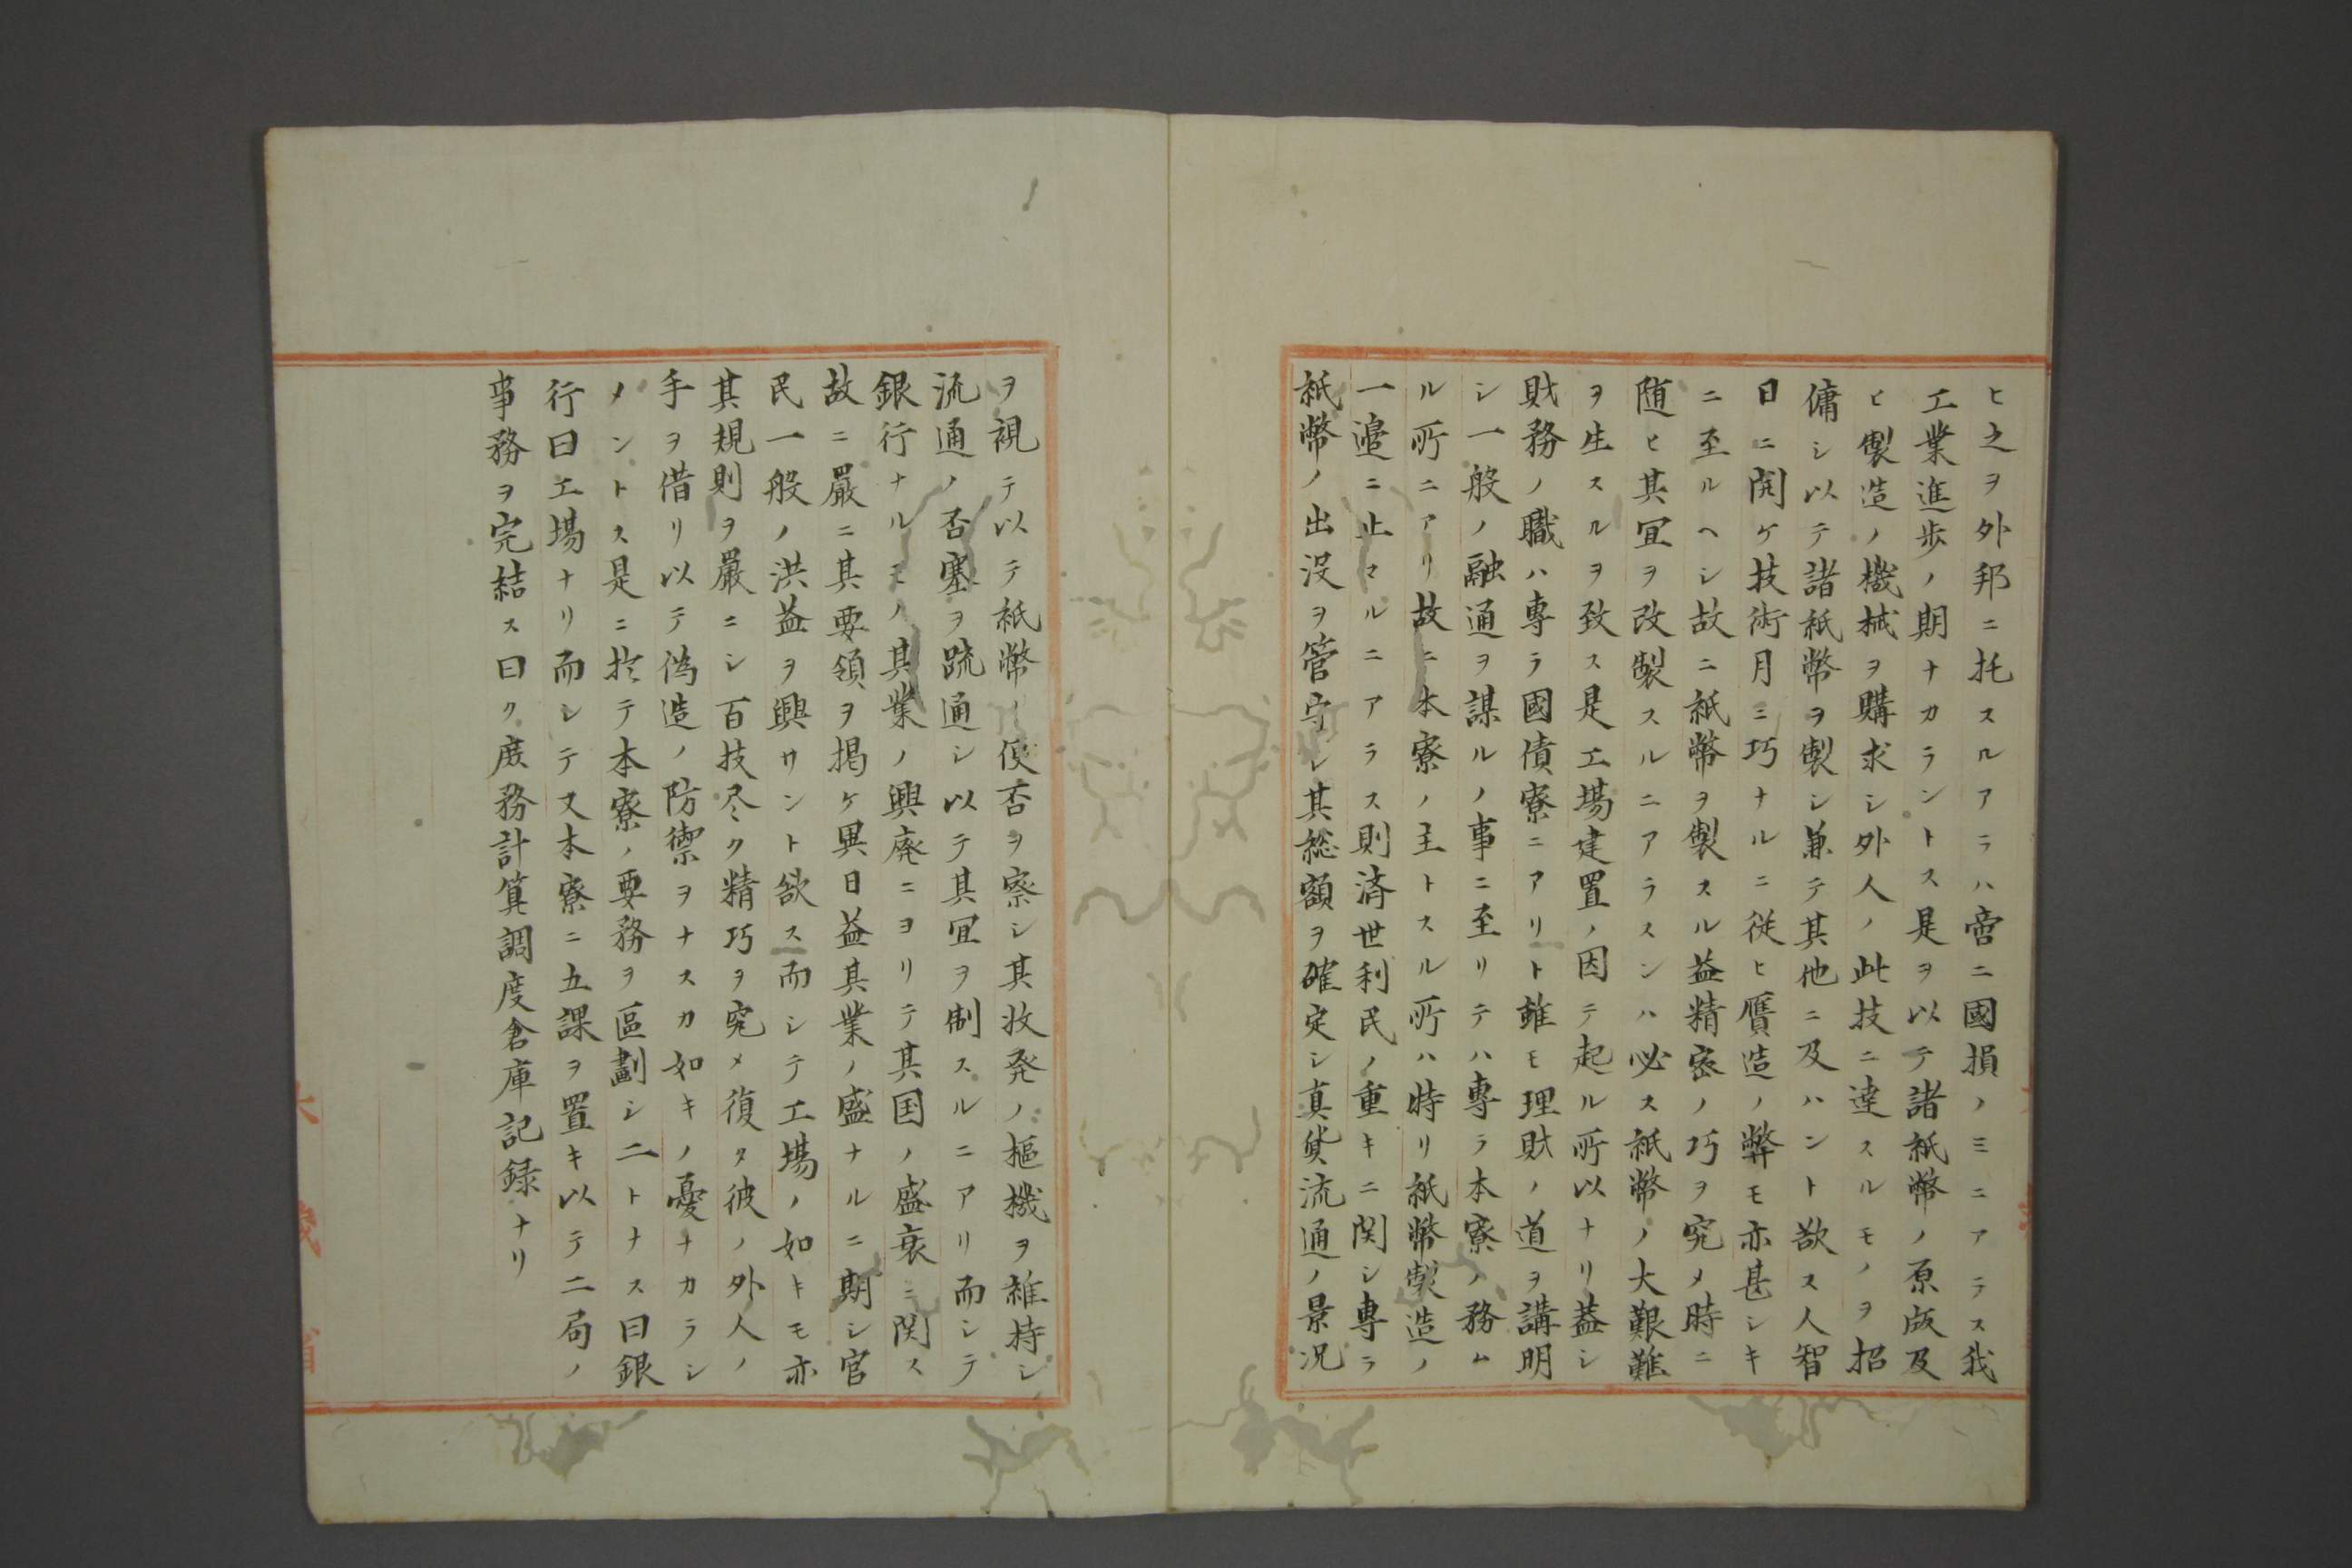 ヒ之ヲ外邦ニ托スルアラハ啻ニ國損ノミニアラス我
工業進歩ノ期ナカラントス是ヲ以テ諸紙幣ノ原版及
ヒ製造ノ機械ヲ購求シ外人ノ此技ニ達スルモノヲ招
傭シ以テ諸紙幣ヲ製シ兼テ其他ニ及ハント欲ス人智
日ニ開ケ技術月ニ巧ナルニ従ヒ贋造ノ弊モ亦甚シキ
ニ至ルヘシ故ニ紙幣ヲ製スル益精密ノ巧ヲ究メ時ニ
随ヒ其冝ヲ改製スルニアラスンハ必ス紙幣ノ大艱難
ヲ生スルヲ致ス是工場建置ノ因テ起ル所以ナリ蓋シ
財務ノ職ハ専ラ國債寮ニアリト雖モ理財ノ道ヲ講明
シ一般ノ融通ヲ謀ルノ事ニ至リテハ専ラ本寮ノ務ム
ル所ニアリ故ニ本寮ノ主トスル所ハ特リ紙幣製造ノ
一邉ニ止マルニアラス則済世利民ノ重キニ関シ専ラ
紙幣ノ出没ヲ管守シ其総額ヲ確定シ真貨流通ノ景況
ヲ視テ以テ紙幣ノ便否ヲ察シ其收発ノ樞機ヲ維持シ
流通ノ否塞ヲ疏通シ以テ其冝ヲ制スルニアリ而シテ
銀行ナルモノ其業ノ興廃ニヨリテ其国ノ盛衰ニ関ス
故ニ嚴ニ其要領ヲ掲ケ異日益其業ノ盛ナルニ期シ官
民一般ノ洪益ヲ興サント欲ス而シテ工場ノ如キモ亦
其規則ヲ嚴ニシ百技尽ク精巧ヲ究メ復タ彼ノ外人ノ
手ヲ借リ以テ偽造ノ防禦ヲナスカ如キノ憂ナカラシ
メントス是ニ於テ本寮ノ要務ヲ區劃シ二トナス曰銀
行曰工場ナリ而シテ又本寮ニ五課ヲ置キ以テ二局ノ
事務ヲ完結ス曰ク庶務計算調度倉庫記録ナリ